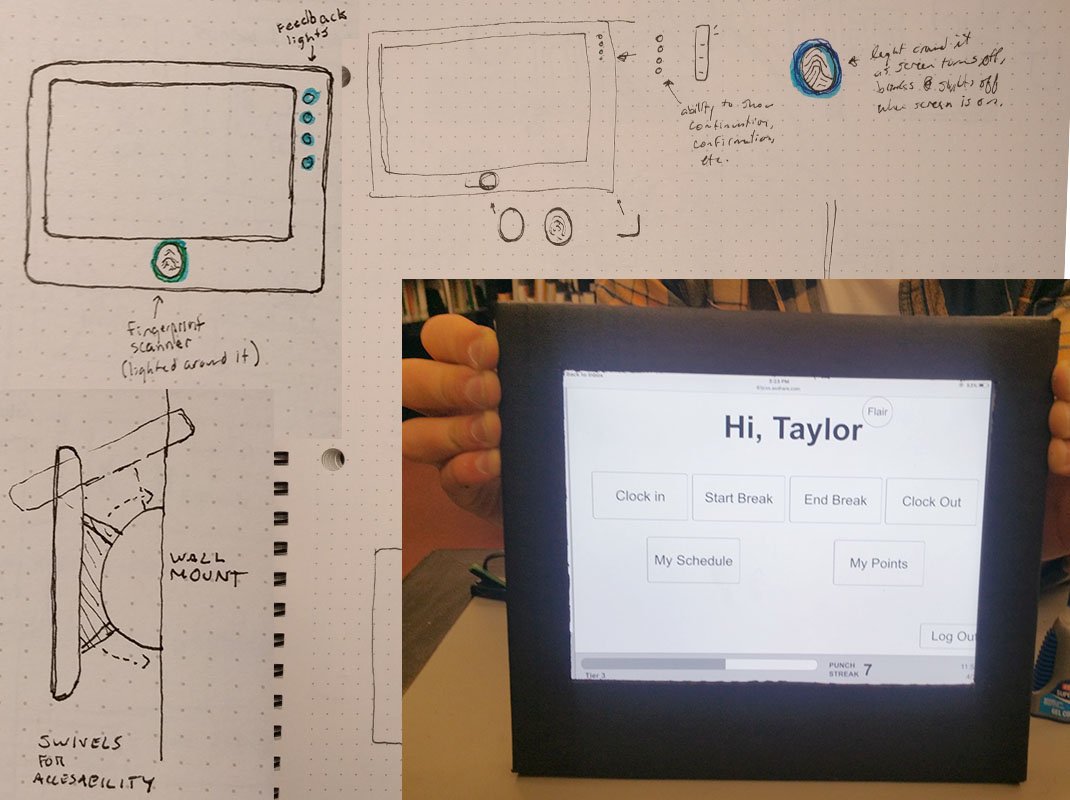 Feedback
lights
Fingerprint
scanner
(lighted around it)
ability to show
continuation,
confirmation,
etc.
light around it
as screen turns off,
blinks & shuts off
when screen is on.
WALL
MOUNT
SWIVELS
FOR
ACCESABILITY
Back to Inbox
5:23 PM
Hi, Taylor
Flair
Clock in
Start Break
End Break
Clock Out
My Schedule
My Points
Log Out
PUNCH
STREAK 7
Tier 3